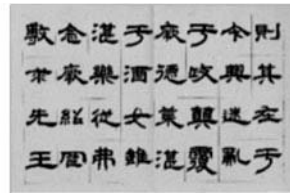 則其在于
今興迷亂
于政顛覆
厥德荒湛
于酒女雖
湛樂從弗
念厥紹罔
敷求先王